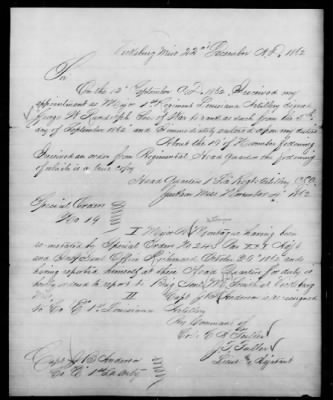 Vicksburg Miss 22nd December A.D. 1862
Sir
On the 12th September A.D. 1862, I received my
appointment as Major 1st Regiment Louisiana Artillery signed
George W Randolph Sec of War to rank as such from the 5th
day of September 1862 and immediately entered upon my duties
About the 10th of November following
I received an order from Regimental Head Quarters the following
of which is a true copy.
Head Quarters 1st La Regt Artillery C.S.A.
Jackson Miss November 4th 1862
Special Orders
No 14
I Major Montague having been
re-instated by Special Order No 248 Par XXI Adjt
and Inspt Genl Office Richmond October 1862 and
having reported himself at these Head Quarters for duty is
hereby ordered to report to Brig Genl M. L. Smith at Vicksburg
II Capt J B Anderson is re-assigned
to Co E 1st Louisiana Artillery
By Command of
Col. C A Fuller
J. Fuller
Lieut & Adjutant
Capt J B Anderson
Co E 1st La Arty